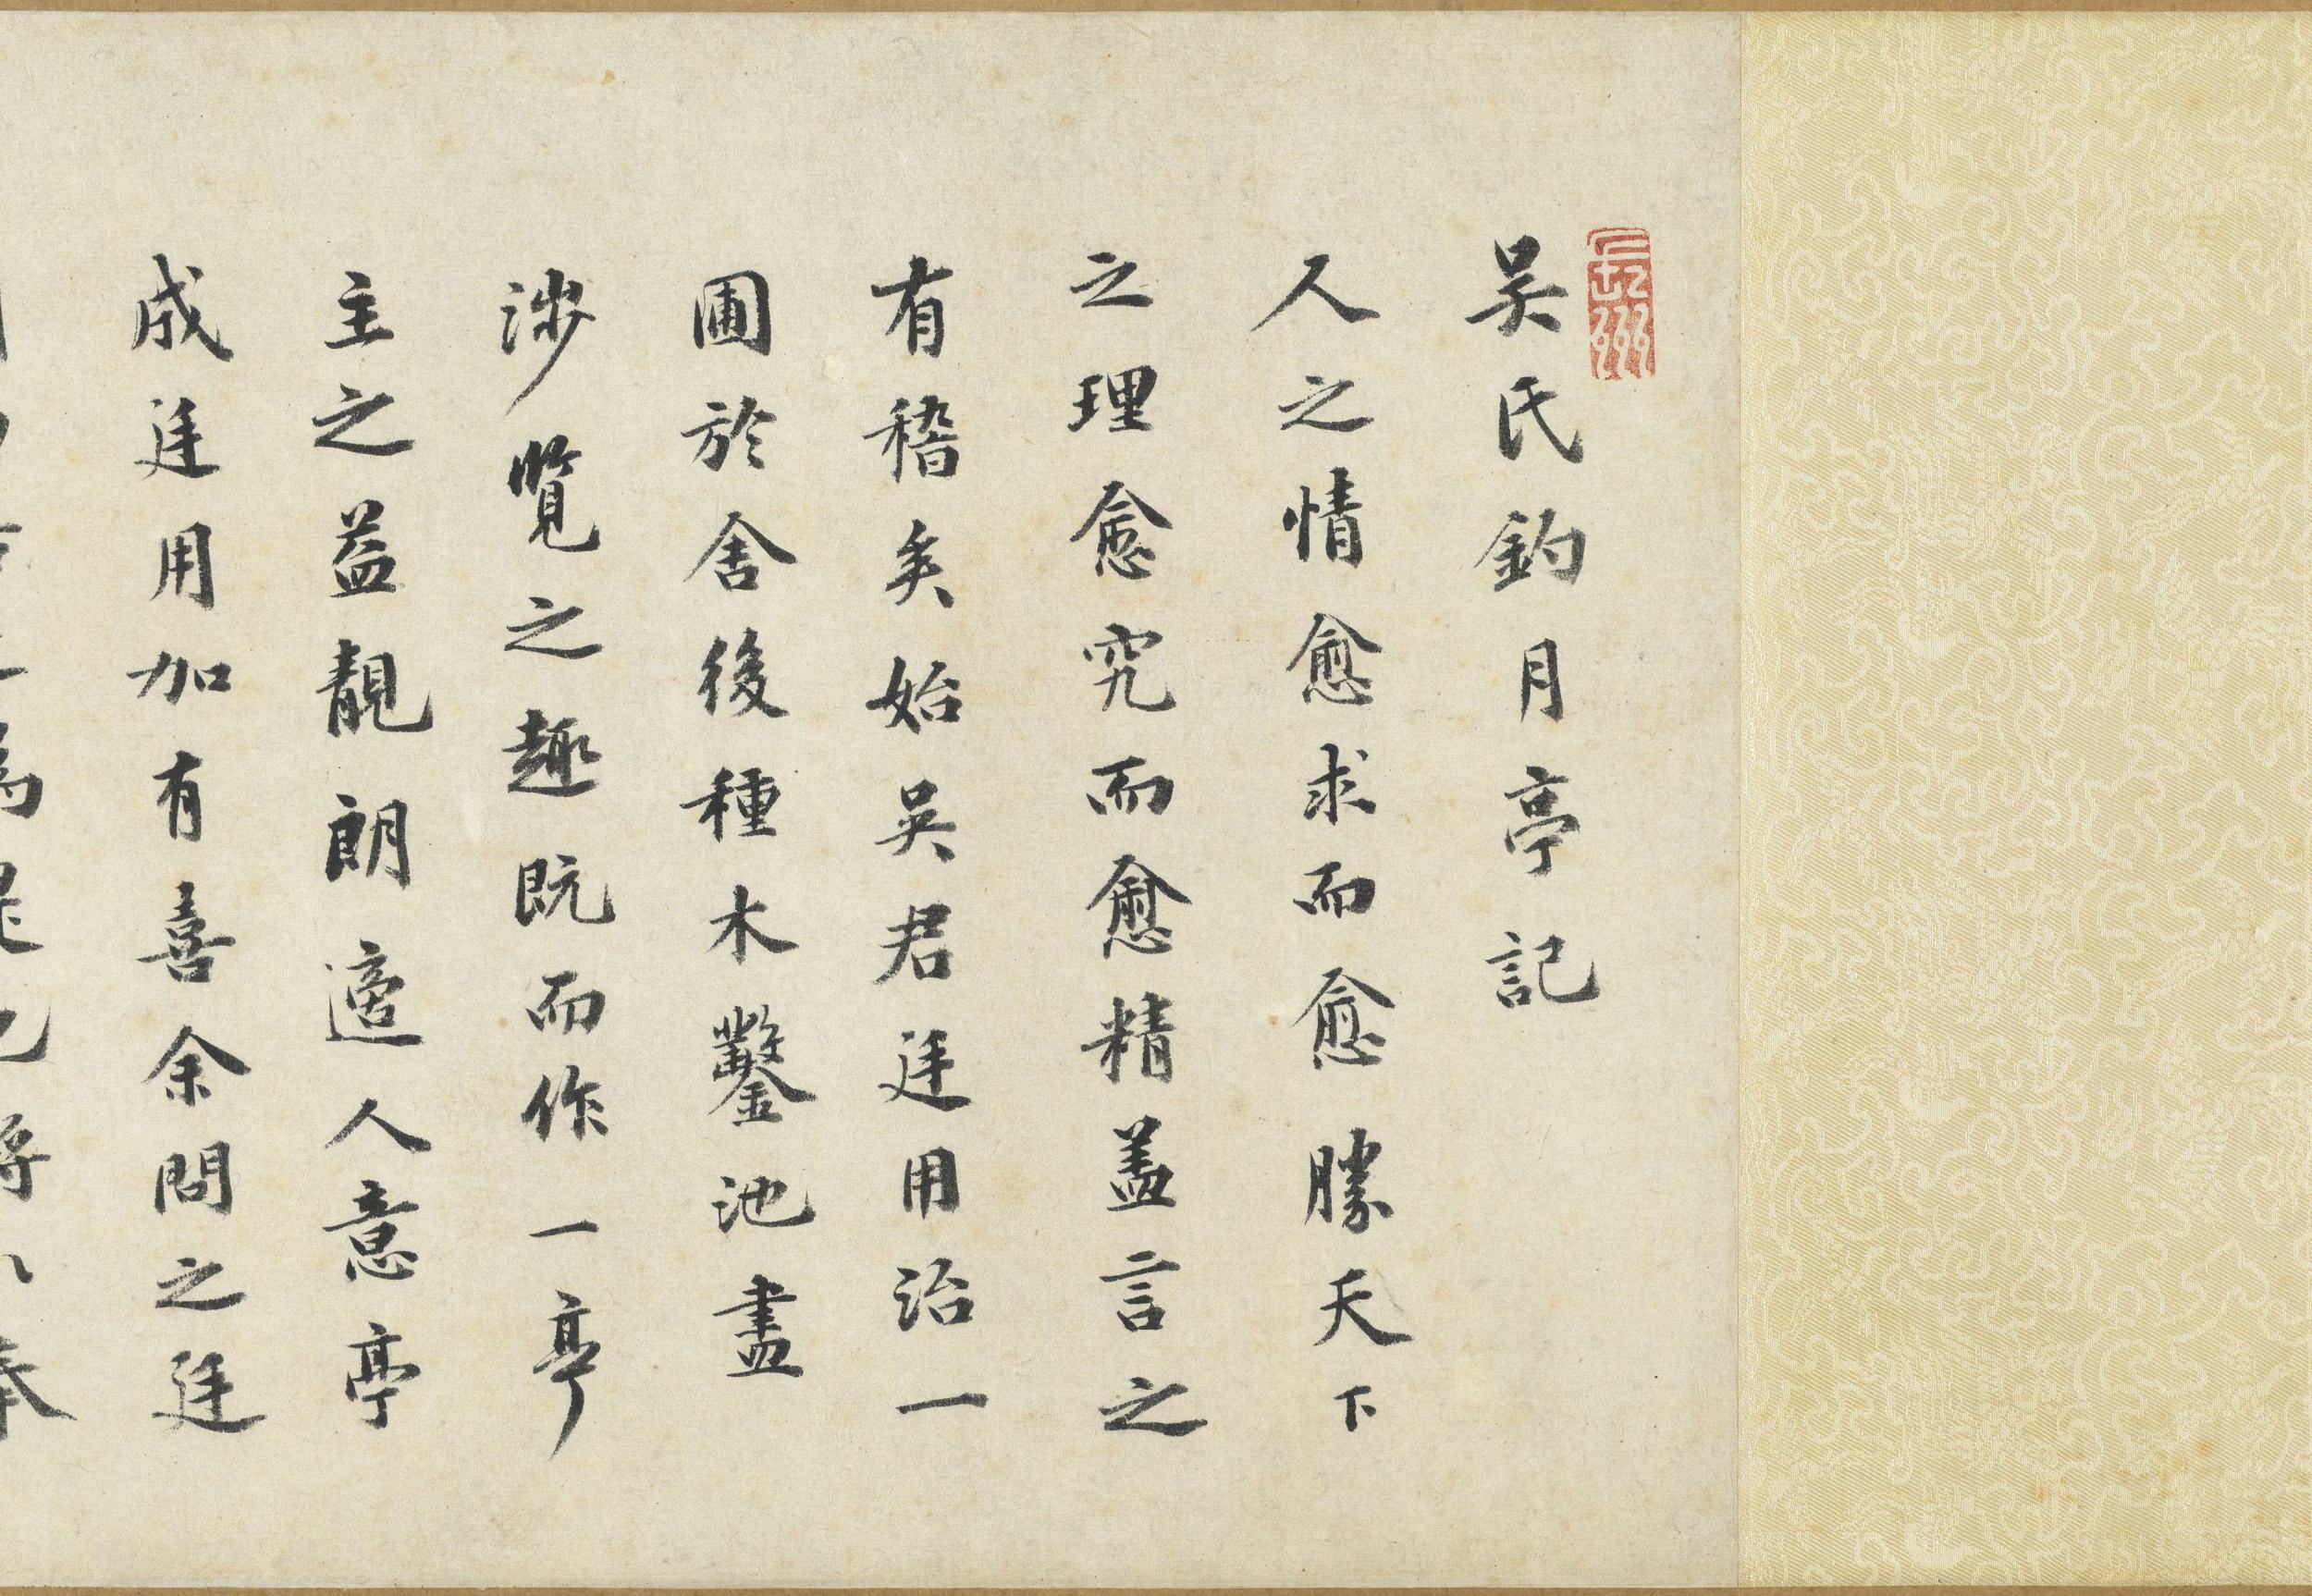 長洲
吴氏釣月亭記
人之情愈求而愈勝天下
之理愈究而愈精盖言之
有稽矣始吴君廷用治一
圃於舍後種木鑿池盡
涉覽之趣既而作一亭
主之益靚朗適人意亭
成廷用加有喜余問之廷